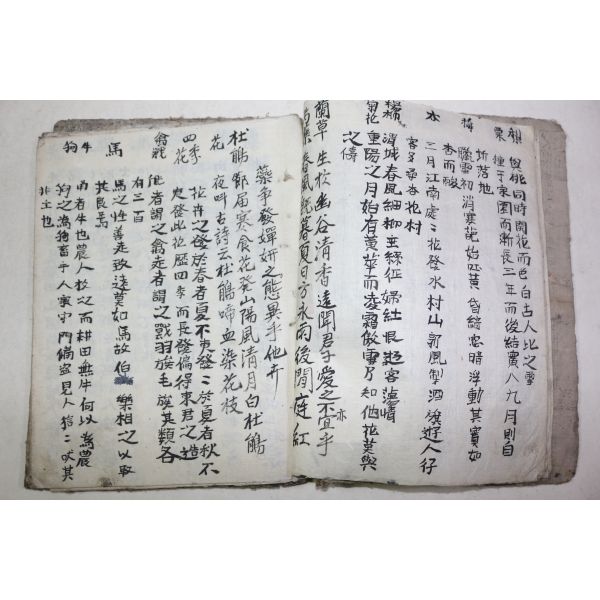 與桃同時開花而色白古人比之雪
栗 種于家園而漸長三年而後結實八九月則自
坼落地
梅 臘雪初消寒 始吐黃昏 暗浮動其實如
杏而酸
杏 三月江南處〻花發水村山郭風 酒旗遊人行
客多尋杏花村
楊柳 渭城春風細柳垂絲征婦 恨遊客蕩情
菊花 重陽之月始有黃華而凌霜傲雪乃知他花莫與
之儔
蘭草 生於幽谷清香遠聞君子愛之不亦宜乎
芍藥 春風旣暮夏日方永雨後閒庭紅
藥爭發嬋妍之態異乎他卉
杜鵑花 節屆寒食花發山陽風清月白杜鵑
夜叫古詩云杜鵑啼血染花枝
四季花 花卉之發於春者夏不發〻於夏者秋不
發此花歷四季而長發偏得東君之造
禽獸 飛者謂之禽走者謂之獸羽族毛族其類各
有三百
馬 馬之性善走致遠莫如馬故伯樂相之以取
其良焉
牛 有者牛也農人牧之而耕田無牛何以爲農
狗 狗之爲物畜于人家守門備盜見人狺〻吠其
非主也